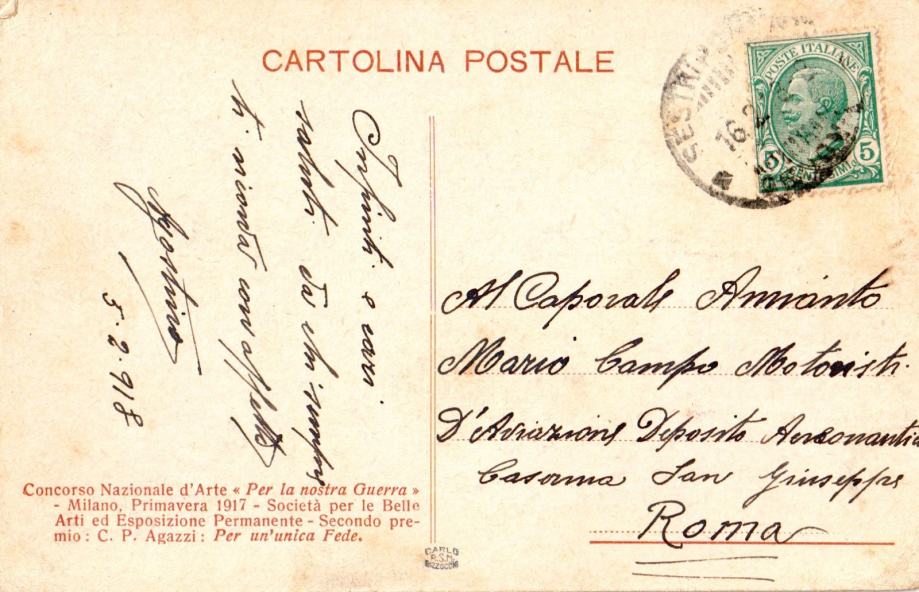 CARTOLINA POSTALE
POSTE ITALIANE
5 5
CENTESIMI
SESTRI
16.2
Infiniti e cari
saluti da chi sempre
ti ricorda con affetto
Agostino
5.2.918
Al Caporale Amianto
Mario Campo Motoristi
D'Aviazione Deposito Aereonautica
Caserma San Giuseppe
Roma
Concorso Nazionale d'Arte « Per la nostra Guerra »
- Milano, Primavera 1917 - Società per le Belle
Arti ed Esposizione Permanente - Secondo pre-
mio : C. P. Agazzi : Per un'unica Fede.
CARLO